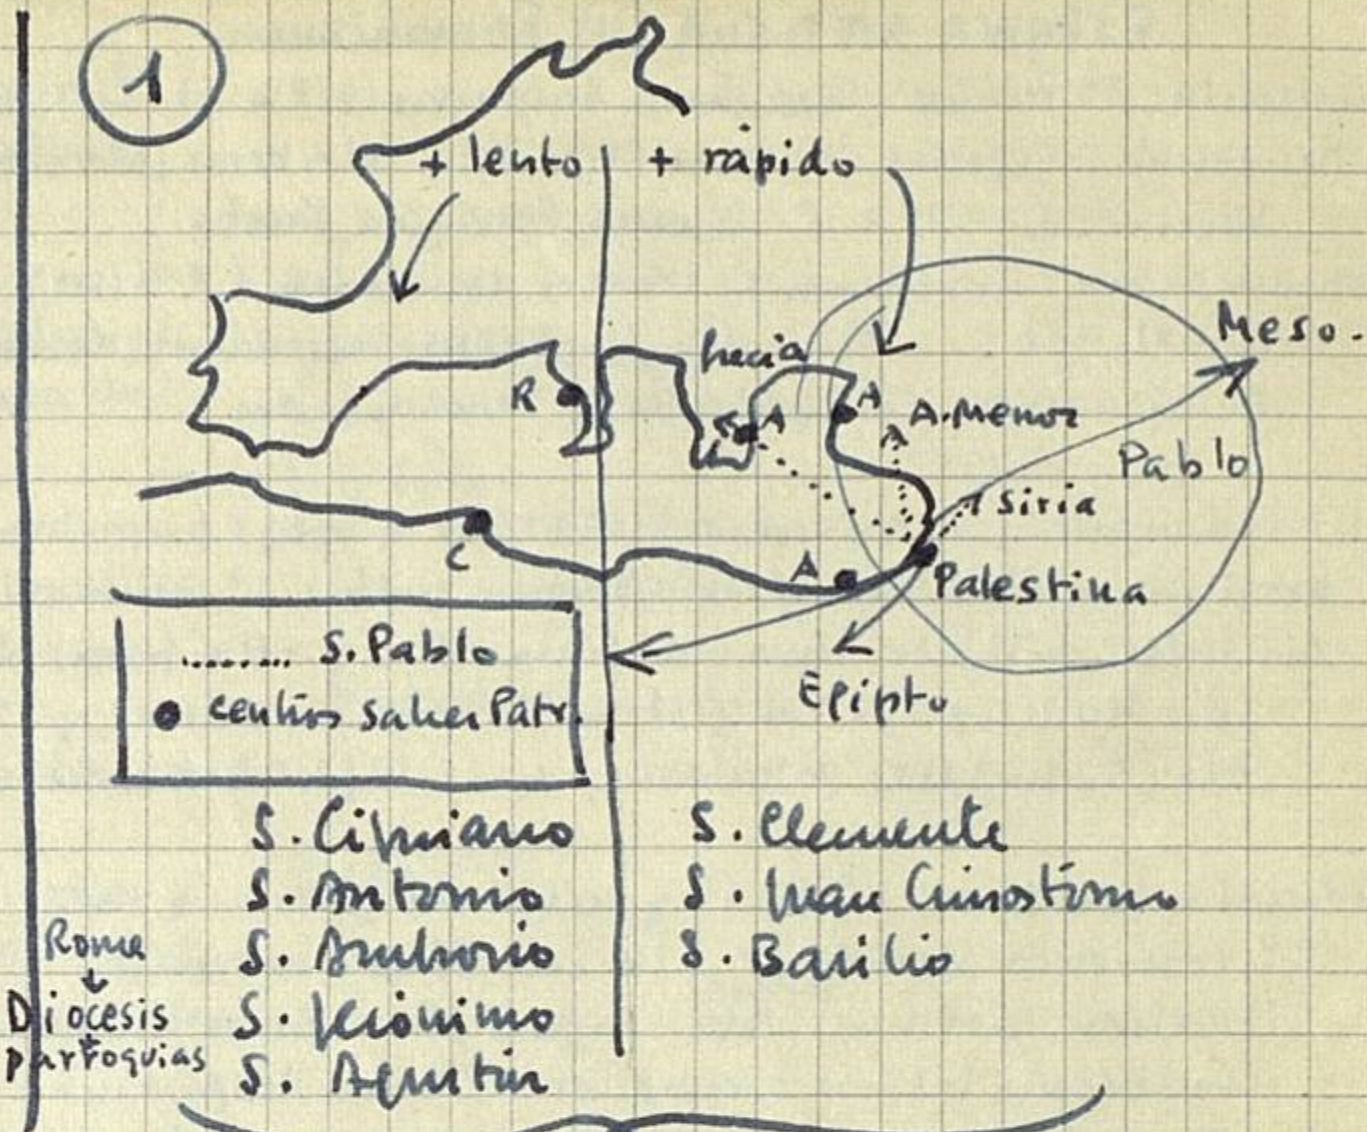 1
+ lento + rápido
Meso.
hacia
R
A
A
A. Menor
Pablo
Siria
C
A
Palestina
Egipto
......... S. Pablo
● centros saber Patr.
S. Cipriano
S. Antonio
S. Ambrosio
S. Jerónimo
S. Agustín
S. Clemente
S. Juan Crisóstomo
S. Basilio
Roma
↓
Diócesis
+
parroquias